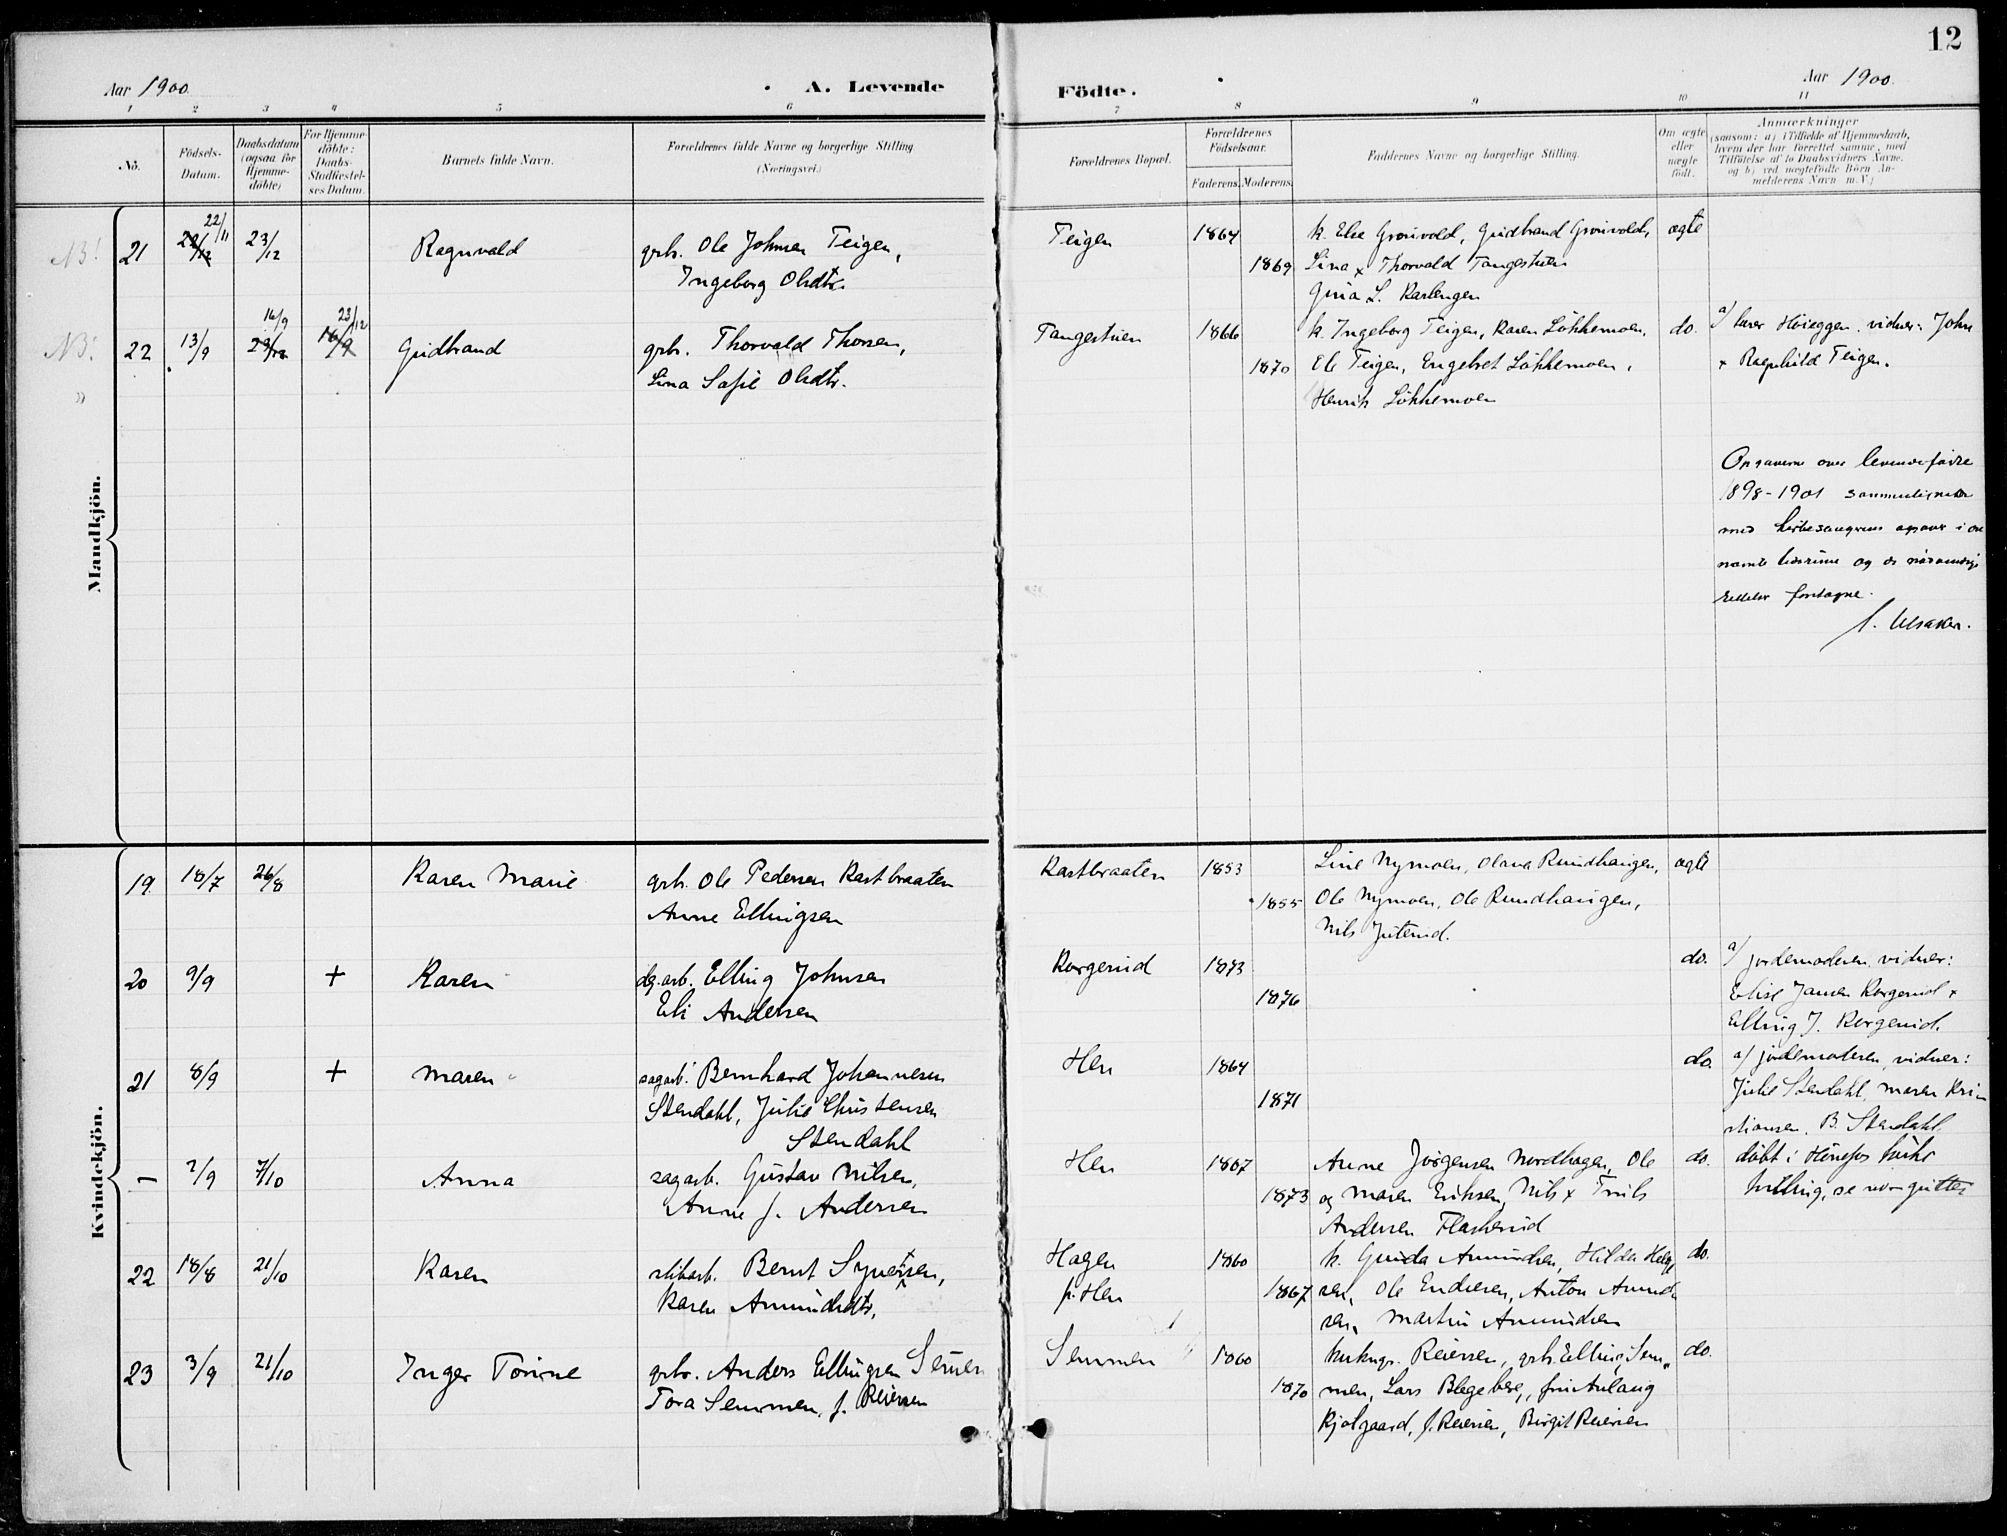 12
Aar 1900.
A. Levende
Födte.
Aar 1900.
1 2 3 4 5 6 7 8 9 10 11
No.
Födsels-
Datum.
Daabsdatum
(ogsaa for
Hjemme-
döbte)
For Hjemme-
döbte:
Daabs-
Stadfæstel-
ses Datum.
Barnets fulde Navn.
Forældrenes fulde Navne og borgerlige Stilling.
(Næringsvei.)
Forældrenes Bopæl.
Forældrenes
Födselsaar.
Faderens. Moderens.
Faddernes Navne og borgerlige Stilling.
Om ægte
eller
uægte
födt.
Anmærkninger
(saasom: a) i Tilfælde af Hjemmedaab,
hvem der har forrettet samme, med
Tilföielse af to Daabsvidners Navne,
og b) ved uægtefödte Börn An-
melderens Navn m.V.)
Mandkjön.
NB!
21
22/11
22/12
23/12
Ragnvald
grbr. Ole Johnsen Teigen,
Ingeborg Olsdtr.
Teigen
1864
1869
k. Else Grönvold, Gudbrand Grönvold,
Lina + Thorvald Tangestuen
Gina L. Karlengen
ægte
NB!
22
13/9
16/9
23/12
23/12
16/9
Gudbrand
grbr. Thorvald Thorsen,
Lina Sofie Olsdtr.
Tangestuen
1866
1870
k. Ingeborg Teigen, Karen Lökkemoen,
Ole Teigen, Engebret Lökkemoen,
Henrik Lökkemoen
do.
a/ lærer Höieggen. vidner: John
+ Ragnhild Teigen.
"
1898-1901
med
og
foretagne.
Kvindekjön.
19.
18/7
26/8
Karen Marie
grbr. Ole Pedersen Kastbraaten
Anne Ellingsen
Kastbraaten
1853
1855
Line Nymoen, Olava Rundhaugen,
Ole Nymoen, Ole Rundhaugen,
Nils Juterud.
ægte
20
9/9
+
Karen
dg.arb. Elling Johnsen
Eli Andersen
Korgerud
1873
1876
do.
a/ jordemoderen. vidner:
Elise Jansen Korgerud +
Elling J. Korgerud.
21
8/9
+
Maren
sagarb. Bernhard Johannesen
Stendahl, Julie Christensen
Stendahl
Hen
1864
1871
do.
a/ jordemoderen, vidner:
Julie Stendahl, Maren Kri-
stiansen. B. Stendahl.
—
2/9
7/10
Anna
sagarb. Gustav Nilsen,
Anne f. Andersen
Hen
1867
1873
Anne Jörgensen Nordhagen, Ole
og Maren Eriksen, Nils + Emils
Andersen Flaskerud
do.
döbt i Hönefos kirke
tvilling, se no — gutter
22
18/8
21/10
Karen
slibarb. Bernt Syversen,
Karen Amundsdtr.
Hagen
p. Hen
1860
1867
k. Gunda Amundsen, Hilda Helge-
sen, Ole Endresen, Anton Amund-
sen, Martin Amundsen
do.
23
3/9
21/10
Inger Torine
grbr. Anders Ellingsen Semmen
Tora Semmen, f. Reiersen
Semmen
1860
1870
kirksgr. Reiersen, grbr. Elling Sem-
men, Lars Blegeberg, fru Aslaug
Kjölgaard, f. Reiersen, Birgit Reiersen
do.